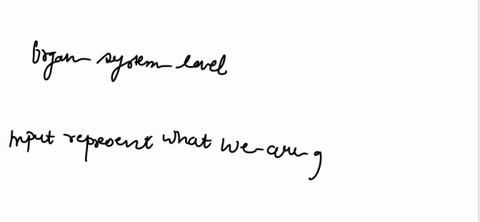 Organ system level
Input represent what we are g